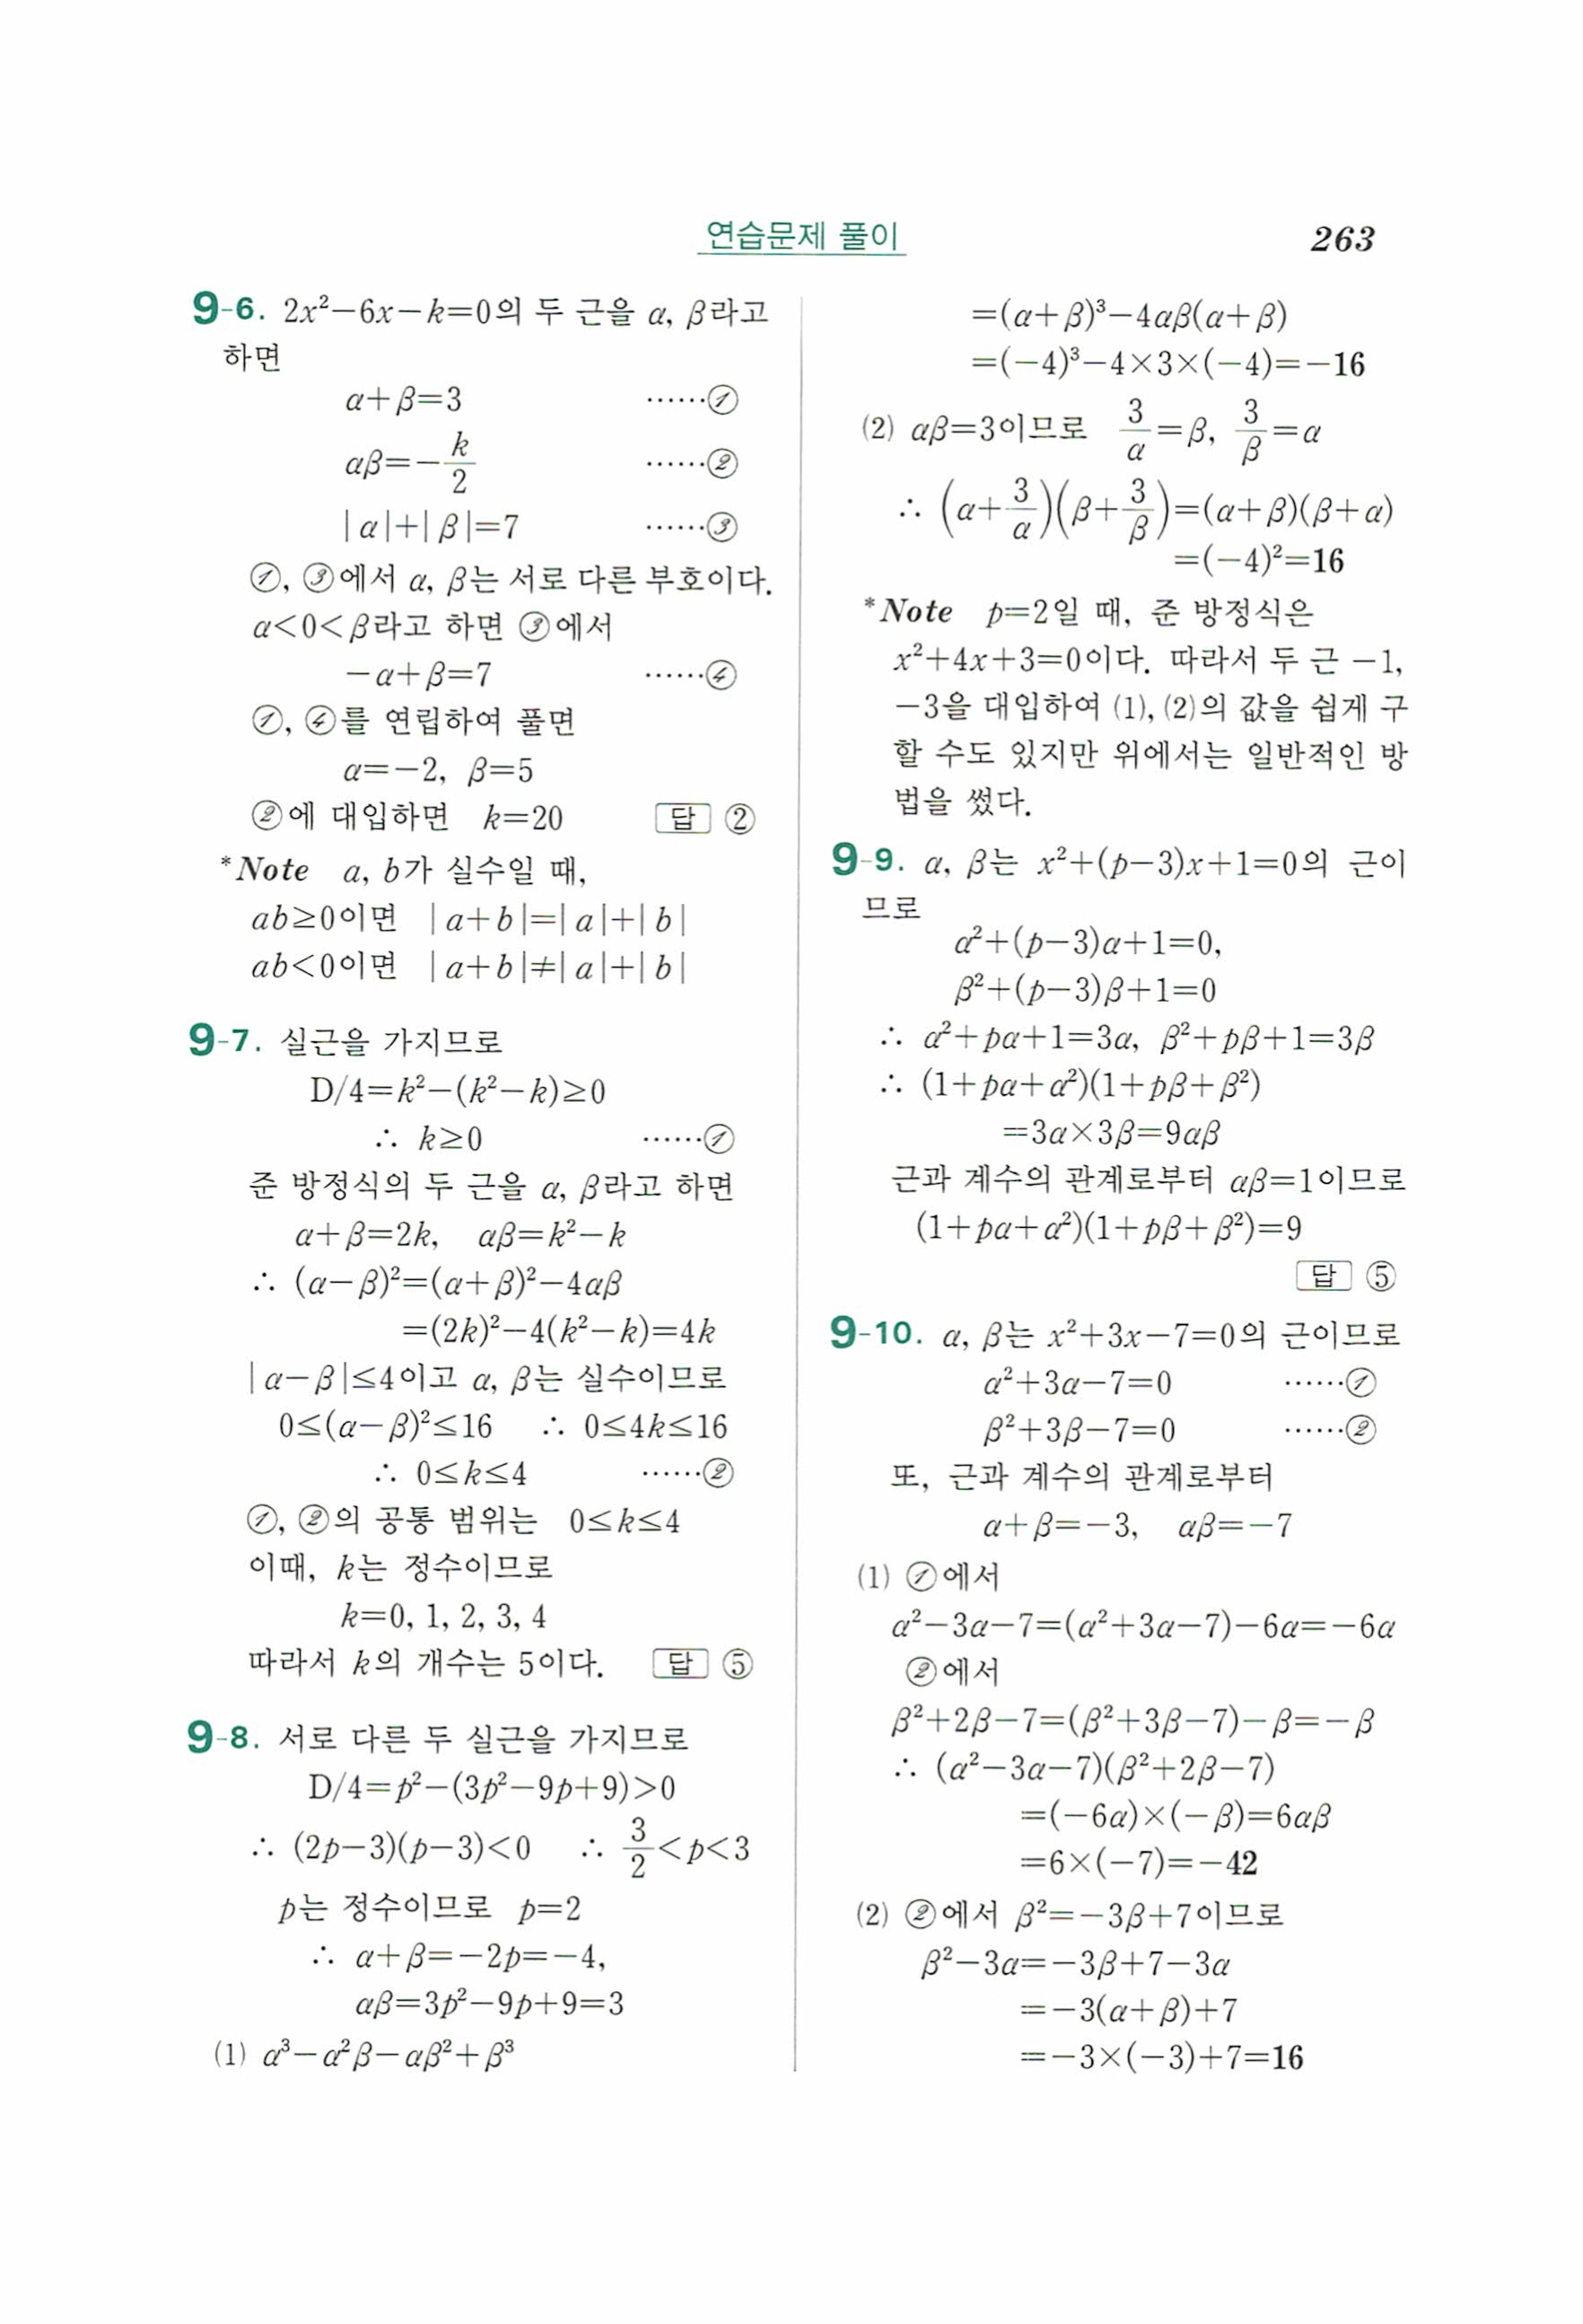 연습문제 풀이
263
9-6. 2x²−6x−k=0의 두 근을 α, β라고
하면
α+β=3 ……①
αβ=−k/2 ……②
|α|+|β|=7 ……③
①, ③에서 α, β는 서로 다른 부호이다.
α<0<β라고 하면 ③에서
−α+β=7 ……④
①, ④를 연립하여 풀면
α=−2, β=5
②에 대입하면 k=20 답 ②
*Note a, b가 실수일 때,
ab≥0이면 |a+b|=|a|+|b|
ab<0이면 |a+b|≠|a|+|b|
9-7. 실근을 가지므로
D/4=k²−(k²−k)≥0
∴ k≥0 ……①
준 방정식의 두 근을 α, β라고 하면
α+β=2k, αβ=k²−k
∴ (α−β)²=(α+β)²−4αβ
=(2k)²−4(k²−k)=4k
|α−β|≤4이고 α, β는 실수이므로
0≤(α−β)²≤16 ∴ 0≤4k≤16
∴ 0≤k≤4 ……②
①, ②의 공통 범위는 0≤k≤4
이때, k는 정수이므로
k=0, 1, 2, 3, 4
따라서 k의 개수는 5이다. 답 ⑤
9-8. 서로 다른 두 실근을 가지므로
D/4=p²−(3p²−9p+9)>0
∴ (2p−3)(p−3)<0 ∴ 3/2<p<3
p는 정수이므로 p=2
∴ α+β=−2p=−4,
αβ=3p²−9p+9=3
(1) α³−α²β−αβ²+β³
=(α+β)³−4αβ(α+β)
=(−4)³−4×3×(−4)=−16
(2) αβ=3이므로 3/α=β, 3/β=α
∴ (α+3/α)(β+3/β)=(α+β)(β+α)
=(−4)²=16
*Note p=2일 때, 준 방정식은
x²+4x+3=0이다. 따라서 두 근 −1,
−3을 대입하여 (1), (2)의 값을 쉽게 구
할 수도 있지만 위에서는 일반적인 방
법을 썼다.
9-9. α, β는 x²+(p−3)x+1=0의 근이
므로
α²+(p−3)α+1=0,
β²+(p−3)β+1=0
∴ α²+pα+1=3α, β²+pβ+1=3β
∴ (1+pα+α²)(1+pβ+β²)
=3α×3β=9αβ
근과 계수의 관계로부터 αβ=1이므로
(1+pα+α²)(1+pβ+β²)=9
답 ⑤
9-10. α, β는 x²+3x−7=0의 근이므로
α²+3α−7=0 ……①
β²+3β−7=0 ……②
또, 근과 계수의 관계로부터
α+β=−3, αβ=−7
(1) ①에서
α²−3α−7=(α²+3α−7)−6α=−6α
②에서
β²+2β−7=(β²+3β−7)−β=−β
∴ (α²−3α−7)(β²+2β−7)
=(−6α)×(−β)=6αβ
=6×(−7)=−42
(2) ②에서 β²=−3β+7이므로
β²−3α=−3β+7−3α
=−3(α+β)+7
=−3×(−3)+7=16